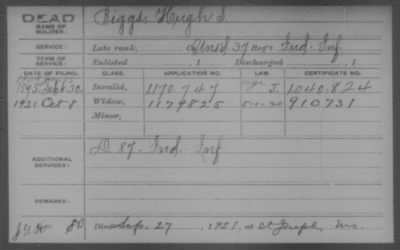 DEAD
NAME OF SOLDIER: Biggs Hugh S.
SERVICE: Late rank, 37 Reg't Ind. Inf.
TERM OF SERVICE: Enlisted 1 Discharged 1
DATE OF FILING. CLASS. APPLICATION NO. LAW. CERTIFICATE NO.
1895 Sept 30 Invalid, 1170.747 1040.824
1921 Oct 8 Widow, 1179825 910731
Minor,
ADDITIONAL SERVICES: D 87. Ind. Inf.
REMARKS:
Died Sep. 27 1921, at St Joseph, Mo.